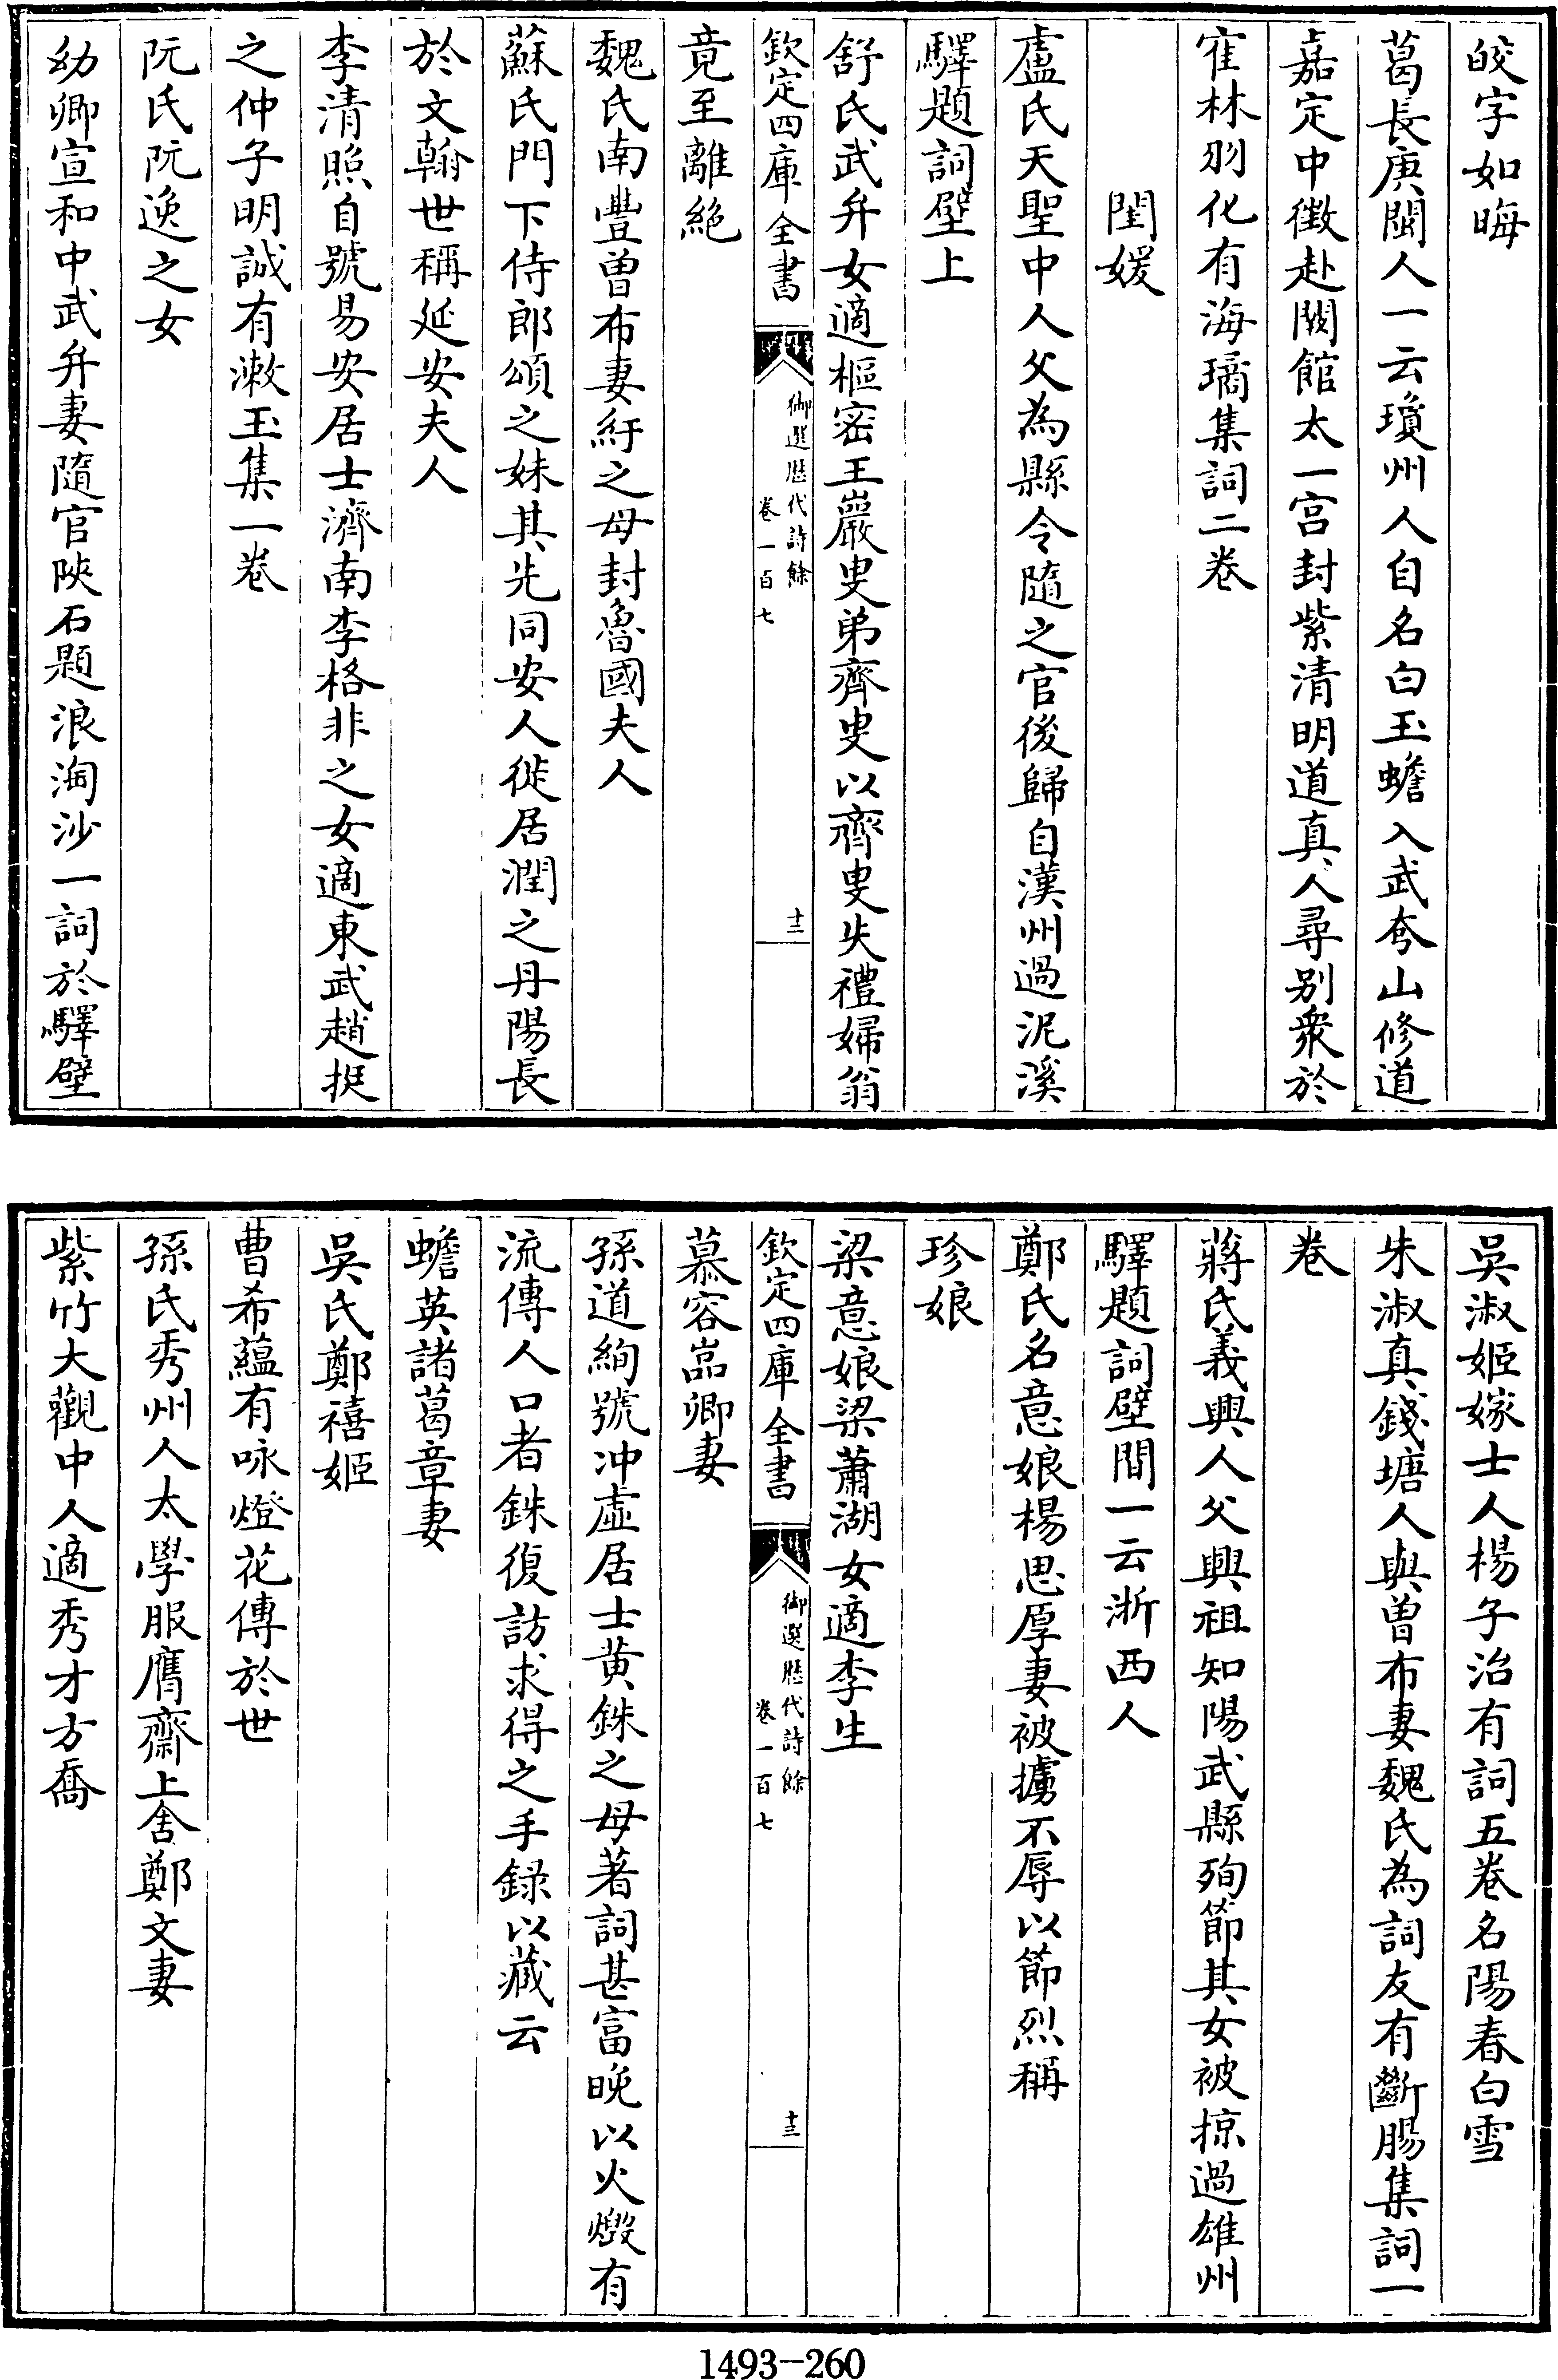 皎字如晦
葛長庚閩人一云瓊州人自名白玉蟾入武夷山修道
嘉定中徵赴闕館太一宫封紫清明道真人尋别衆於
隺林羽化有海璚集詞二卷
閨媛
盧氏天聖中人父為縣令隨之官後歸自漢州過泥溪
驛題詞壁上
舒氏武弁女適樞密王巖叟弟齊叟以齊叟失禮婦翁
竟至離絶
欽定四庫全書
御選歷代詩餘
卷一百七
十二
魏氏南豐曾布妻紆之母封魯國夫人
蘇氏門下侍郎頌之妹其先同安人徙居潤之丹陽長
於文翰世稱延安夫人
李清照自號易安居士濟南李格非之女適東武趙挺
之仲子明誠有漱玉集一卷
阮氏阮逸之女
幼卿宣和中武弁妻隨官陜石題浪淘沙一詞於驛壁
吳淑姬嫁士人楊子治有詞五卷名陽春白雪
朱淑真錢塘人與曾布妻魏氏為詞友有斷腸集詞一
卷
蔣氏義興人父興祖知陽武縣殉節其女被掠過雄州
驛題詞壁間一云浙西人
鄭氏名意娘楊思厚妻被擄不辱以節烈稱
珍娘
梁意娘梁蕭湖女適李生
欽定四庫全書
御選歷代詩餘
卷一百七
十三
慕容嵓卿妻
孫道絢號冲虛居士黄銖之母著詞甚富晚以火燬有
流傳人口者銖復訪求得之手録以藏云
蟾英諸葛章妻
吳氏鄭禧姬
曹希蘊有咏燈花傳於世
孫氏秀州人太學服膺齋上舍鄭文妻
紫竹大觀中人適秀才方喬
1493—260